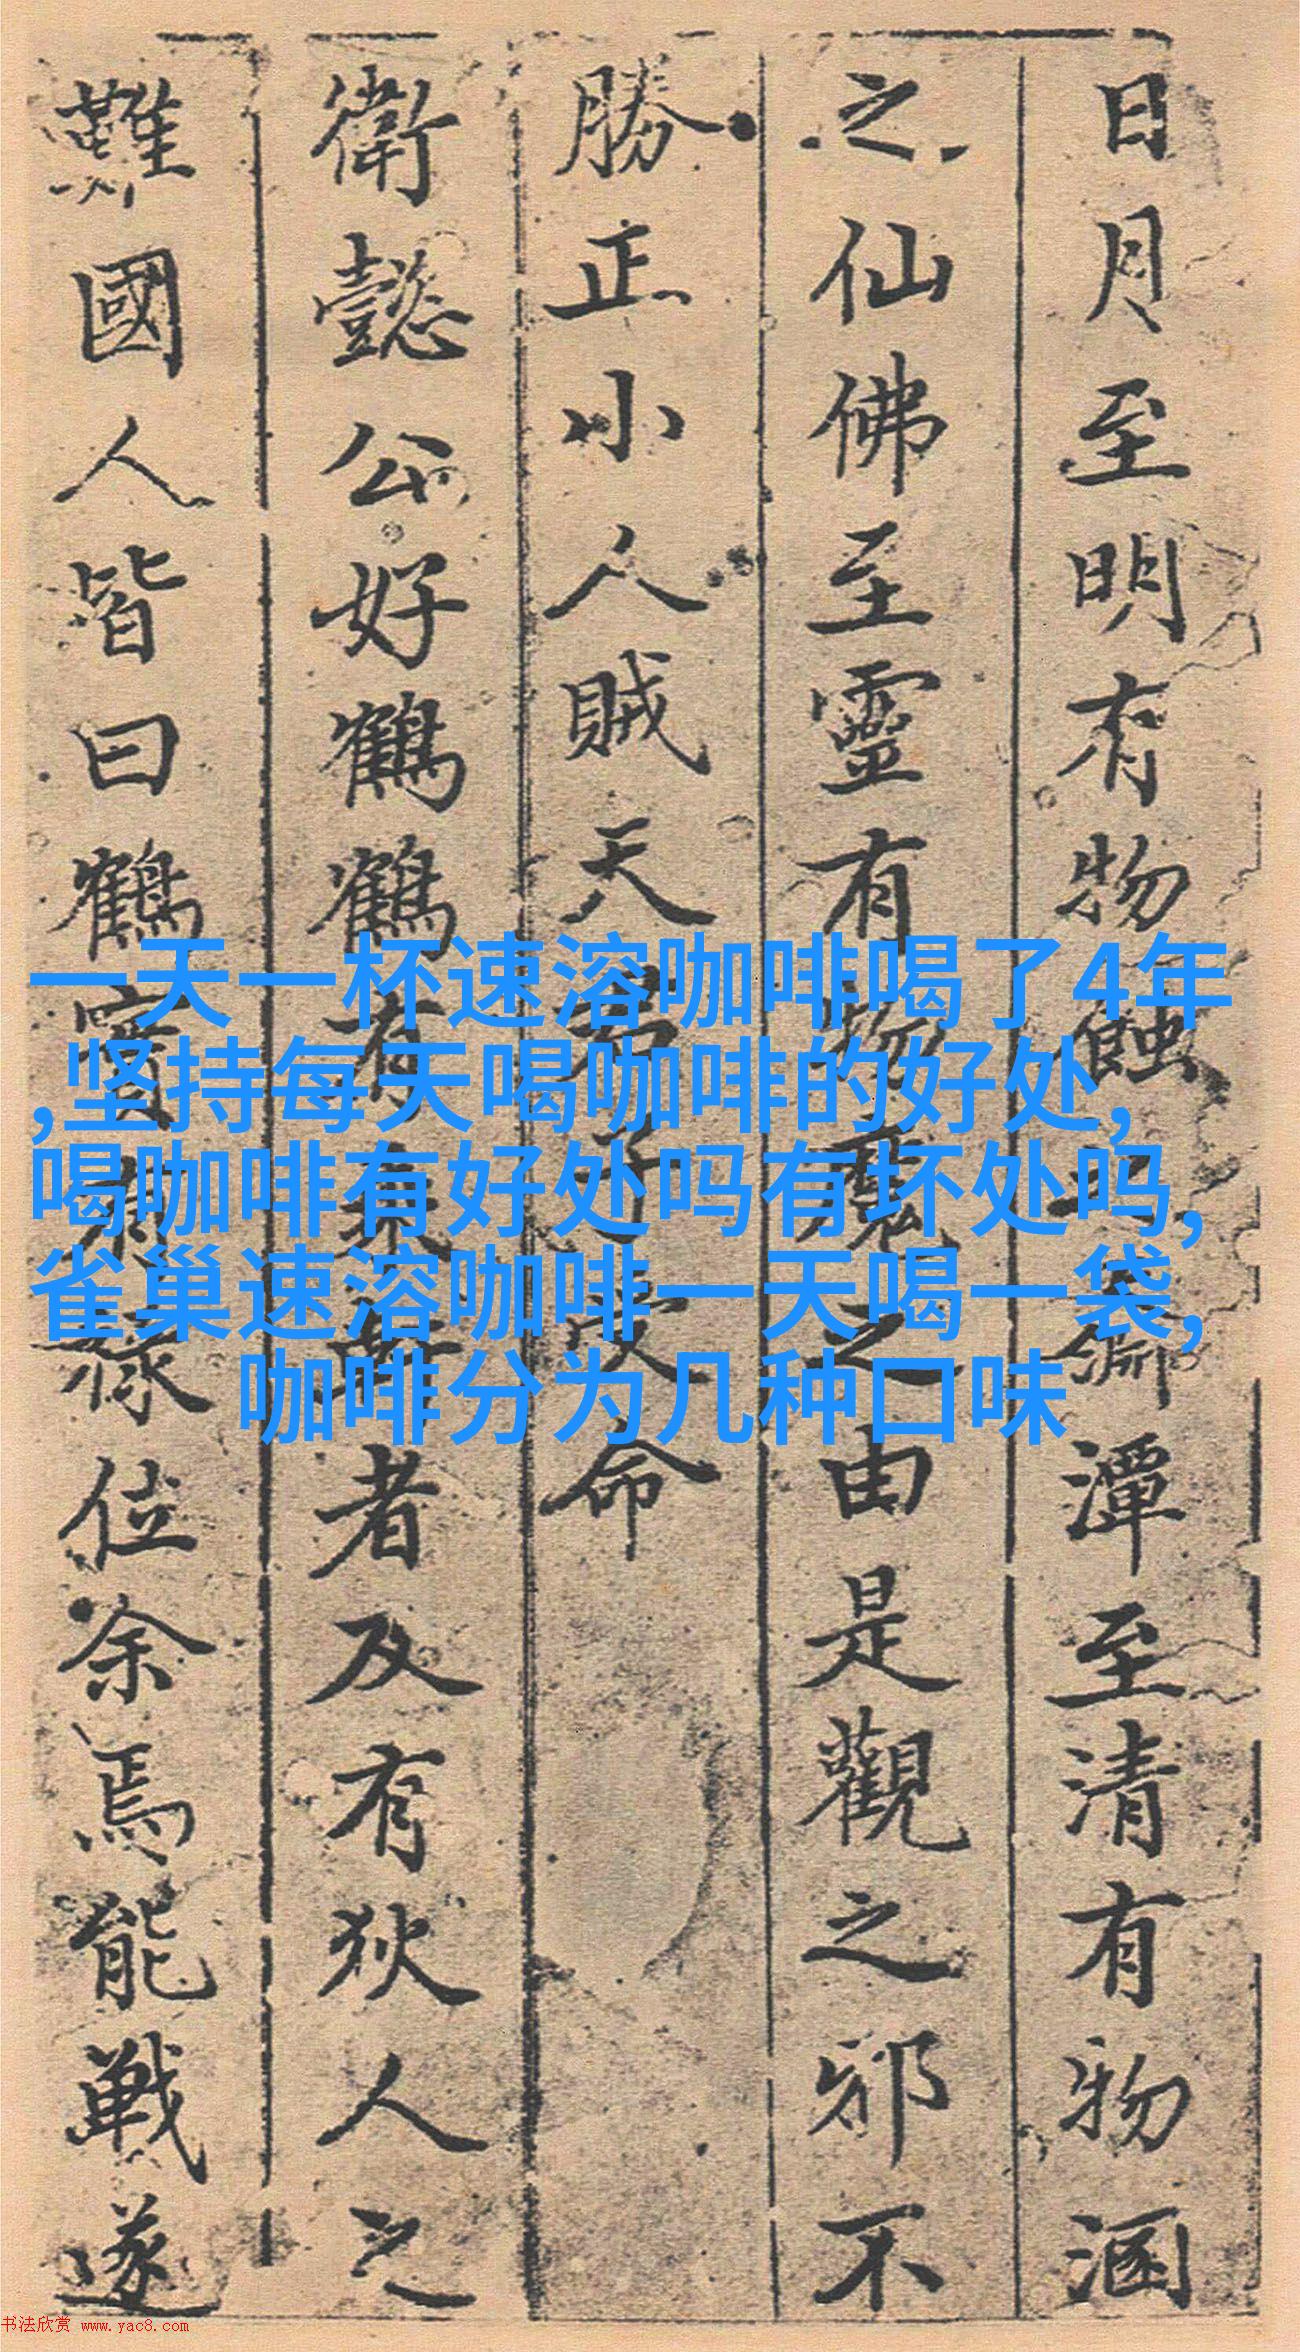 日月至明有物蝕
潭至清有物溷
之仙佛至靈有物魔之由是觀之邪不
勝正小人賊天
命
衛懿公好鶴鶴有
者及有狄人之
難國人皆曰鶴實
祿位余焉能戰遂
一天一杯速溶咖啡喝了4年
,坚持每天喝咖啡的好处,
喝咖啡有好处吗有坏处吗,
雀巢速溶咖啡一天喝一袋,
咖啡分为几种口味
书法欣赏 www.yac8.com